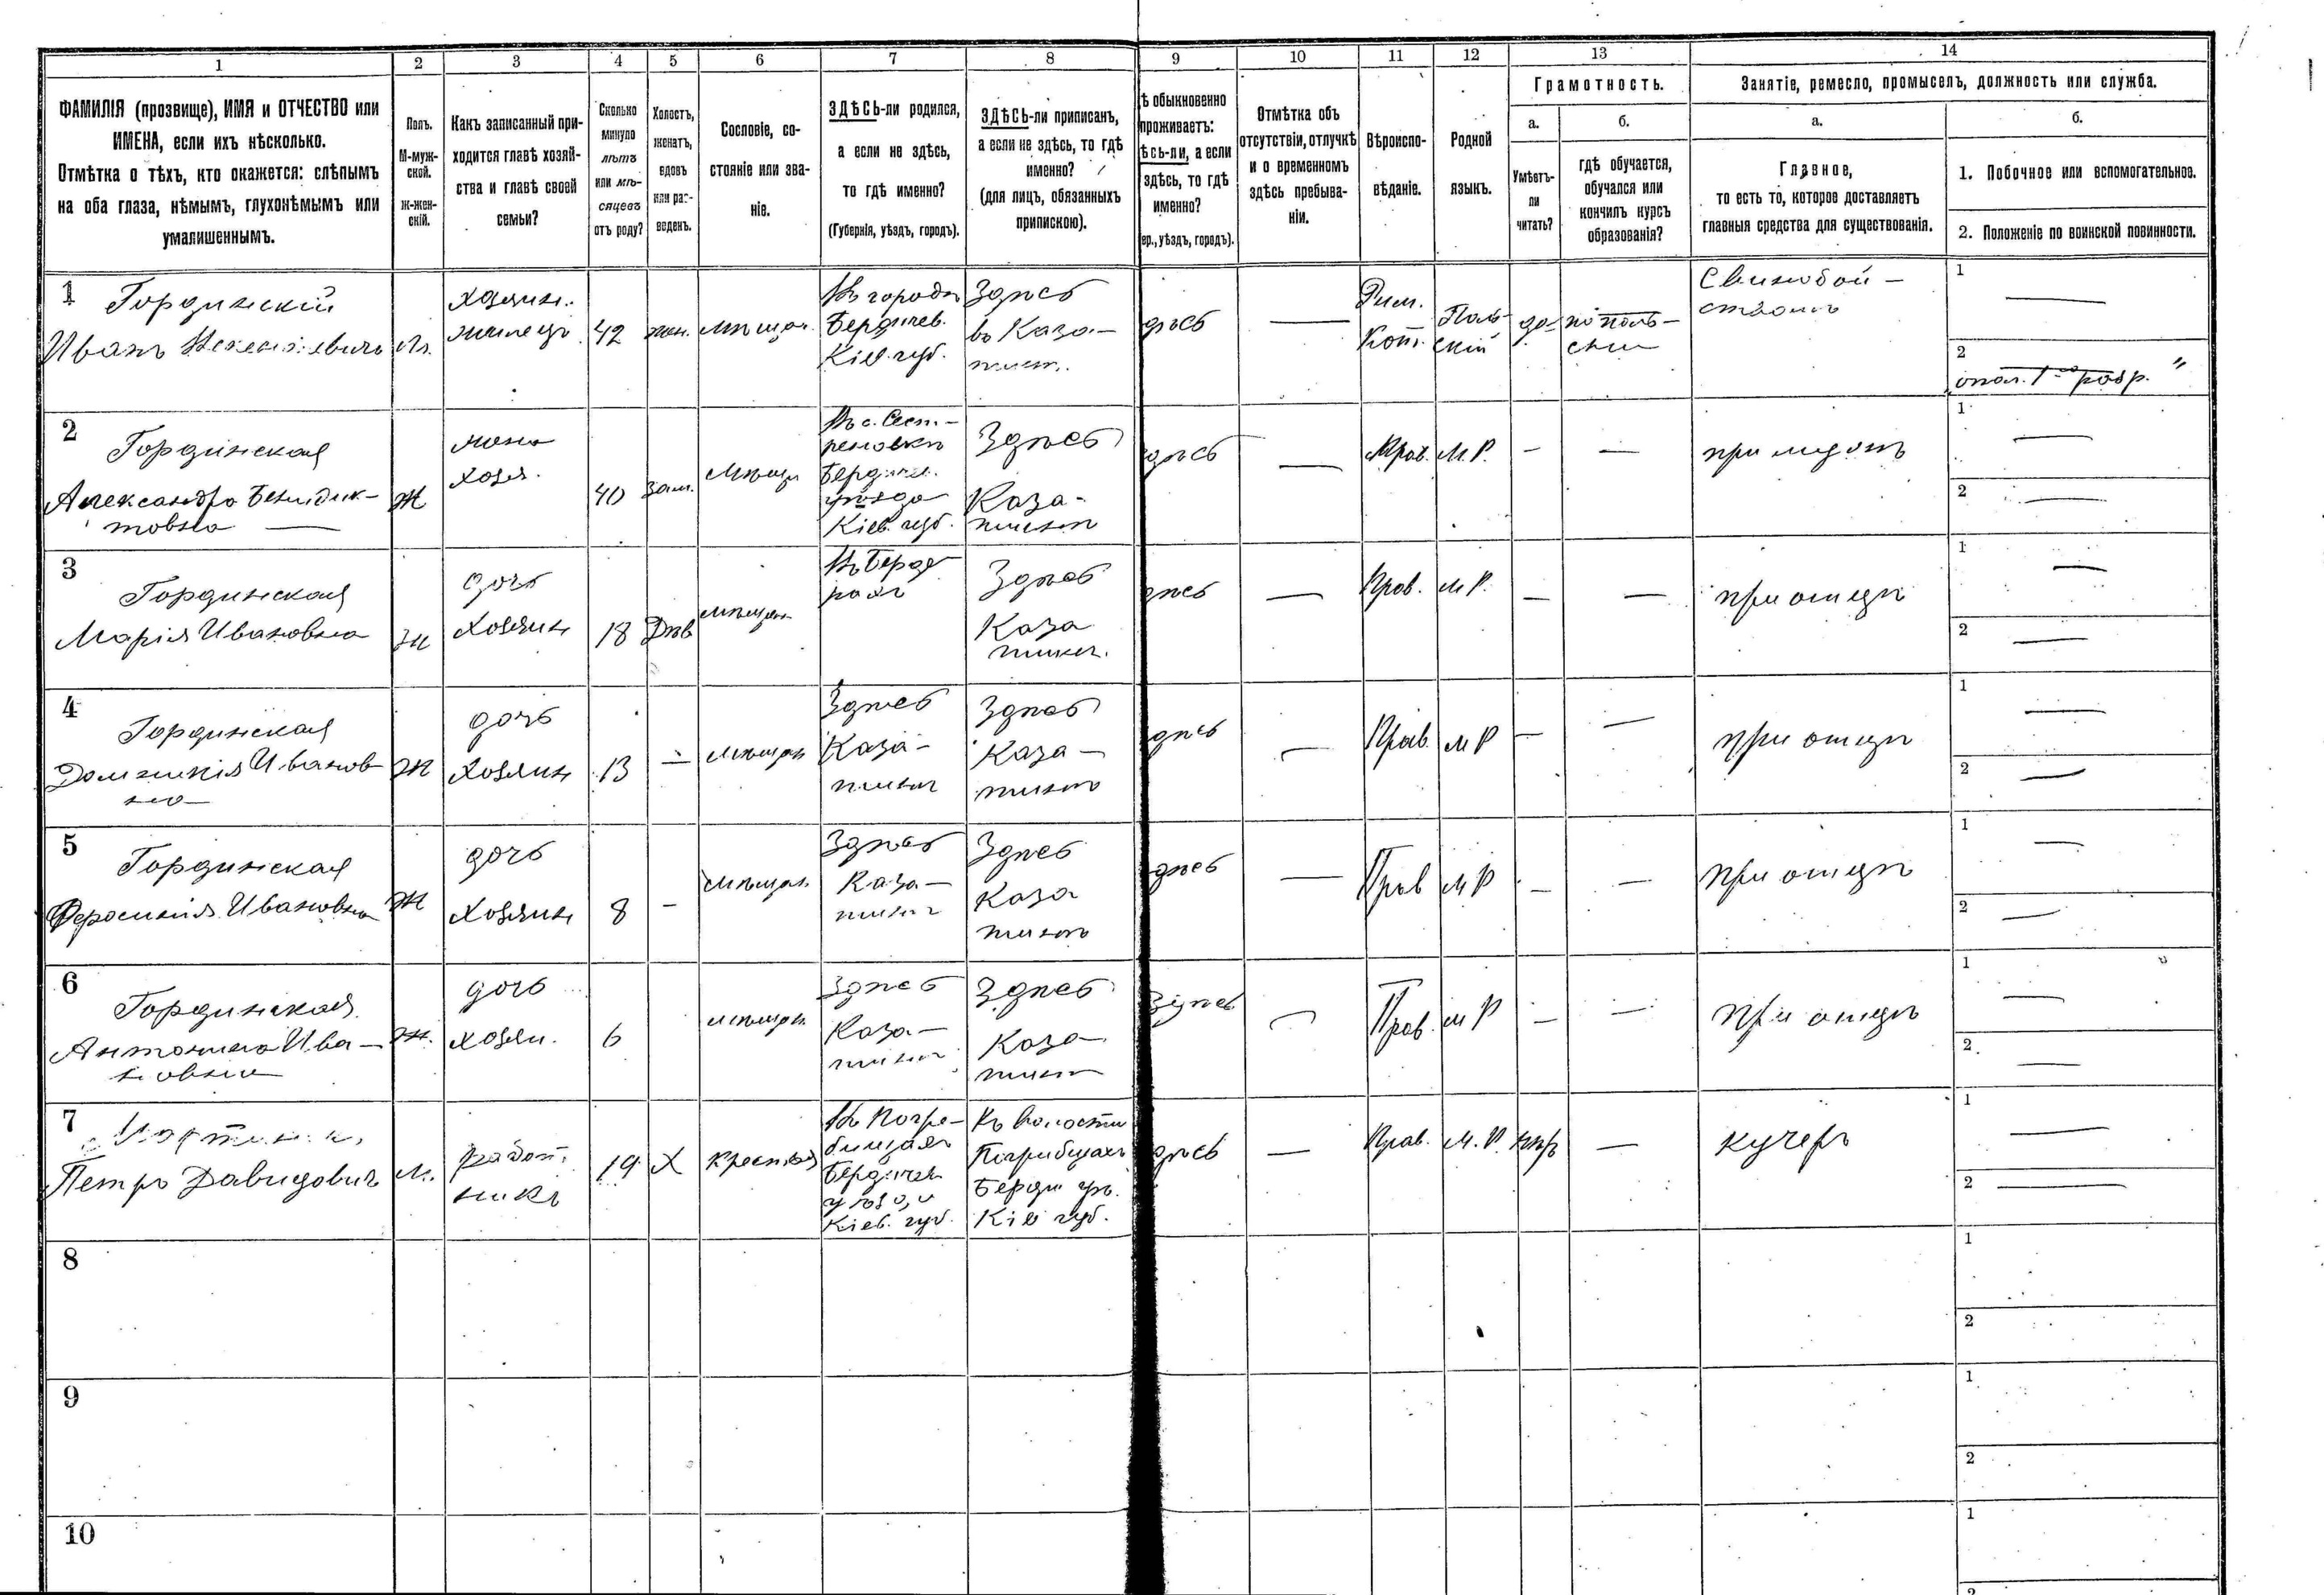 1
2
3
4
5
6
7
8
9
10
11
12
13
14
ФАМИЛІЯ (прозвище), ИМЯ и ОТЧЕСТВО или
ИМЕНА, если ихъ нѣсколько.
Отмѣтка о тѣхъ, кто окажется: слѣпымъ
на оба глаза, нѣмымъ, глухонѣмымъ или
умалишеннымъ.
Полъ.
М-муж-
ской.
Ж-жен-
скій.
Какъ записанный при-
ходится главѣ хозяй-
ства и главѣ своей
семьи?
Сколько
минуло
лѣтъ
или мѣ-
сяцевъ
отъ роду?
Холостъ,
женатъ,
вдовъ
или раз-
веденъ.
Сословіе, со-
стояніе или зва-
ніе.
ЗДѢСЬ-ли родился,
а если не здѣсь,
то гдѣ именно?
(Губернія, уѣздъ, городъ).
ЗДѢСЬ-ли приписанъ,
а если не здѣсь, то гдѣ
именно?
(для лицъ, обязанныхъ
припискою).
ѣ обыкновенно
проживаетъ:
ѣсь-ли, а если
здѣсь, то гдѣ
именно?
ер., уѣздъ, городъ).
Отмѣтка объ
отсутствіи, отлучкѣ
и о временномъ
здѣсь пребыва-
ніи.
Вѣроиспо-
вѣданіе.
Родной
языкъ.
Грамотность.
а.
Умѣетъ-
ли
читать?
б.
гдѣ обучается,
обучался или
кончилъ курсъ
образованія?
Занятіе, ремесло, промыселъ, должность или служба.
а.
Главное,
то есть то, которое доставляетъ
главныя средства для существованія.
б.
1. Побочное или вспомогательное.
2. Положеніе по воинской повинности.
1
Гординскій
Иванъ
М.
хозяин.
жилецъ
42
жен.
мѣщан.
Въ городѣ
Бердичев.
Кіев. губ.
Здѣсь
въ Каза-
тин.
дѣсь
—
Рим.
Кат.
Поль-
скій
да
по поль-
ски
Свинобой-
1
—
2
опол. 1го разр.
2
Гординская
Александра Бенидик-
товна
Ж
жена
хозя.
40
зам.
мѣщан
Въ с. Сест-
реновкѣ
Бердичев.
уѣзда
Кіев. губ.
Здѣсь
Каза-
тинѣ
дѣсь
—
Прав.
М.Р.
—
—
при мужѣ
1
—
2
—
3
Гординская
Марія Ивановна
Ж
дочь
хозяин
18
Дѣв
мѣщан
Здѣсь
Каза
тинѣ.
дѣсь
—
Прав.
М.Р.
—
—
при отцѣ
1
—
2
—
4
Гординская
Домникія Иванов
на
Ж
дочь
хозяин
13
—
мѣщан
Здѣсь
Каза-
тинѣ
Здѣсь
Каза-
тинѣ
дѣсь
—
Прав.
М Р
—
—
при отцѣ
1
—
2
—
5
Гординская
Ивановна
Ж
дочь
хозяин
8
—
мѣщан.
Здѣсь
Каза-
тинѣ
Здѣсь
Каза
тинѣ
дѣсь
—
Прав
М Р
—
—
при отцѣ
1
—
2
—
6
Гординская
Антонина Ива-
новна
Ж.
дочь
хозяи.
6
мѣщан.
Здѣсь
Каза-
тинѣ
Здѣсь
Каза-
тинѣ
Здѣсь
—
Прав.
М Р
—
—
при отцѣ
1
—
2
—
7
Петръ Давидовичъ
М.
работ.
никъ
19
Х
крестьян
Въ Погре-
бищахъ
Бердичев
уѣзда,
Кіев. губ.
Къ волости
Погрибщахъ
Берди уѣ.
Кіев губ.
дѣсь
—
Прав.
М.Р.
—
кучеръ
1
—
2
—
8
1
2
9
1
2
10
1
2